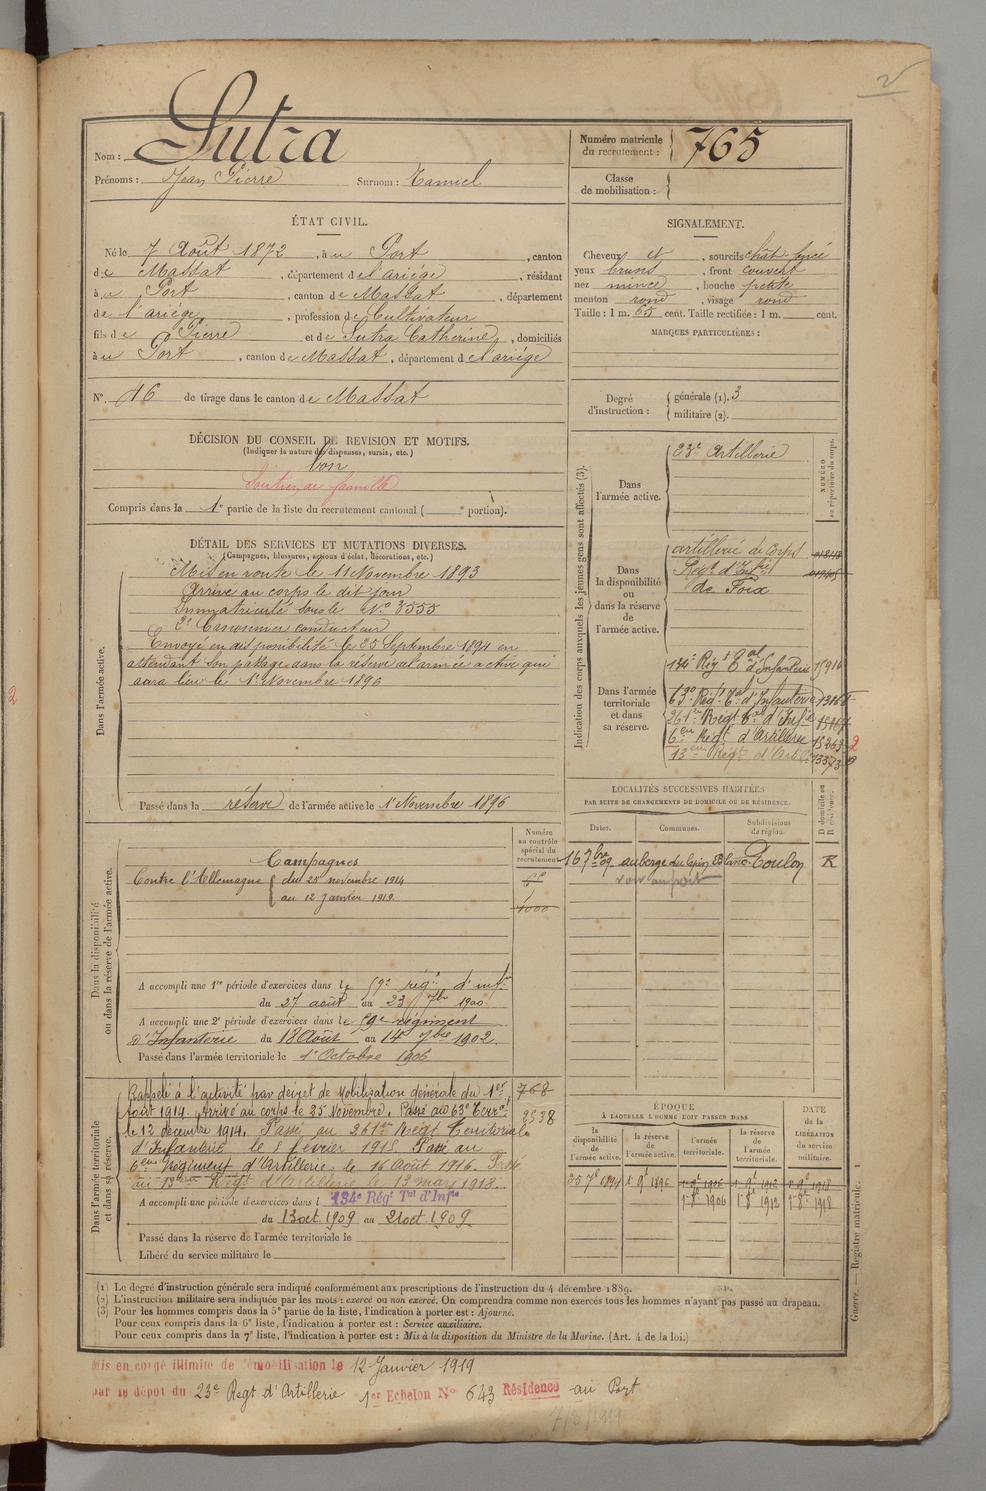 2
Nom : Sutra
Prénoms : Jean Pierre Surnom : Tamiel
Numéro matricule du recrutement : 765
Classe de mobilisation :
ÉTAT CIVIL.
Né le 7 Août 1872, à u Port, canton
de Massat, département de l'ariège, résidant
à u Port, canton de Massat, département
de l'ariège, profession de Cultivateur
fils de Pierre et de Sutra Catherine, domiciliés
à u Port, canton de Massat, département de l'ariège
N° 16 de tirage dans le canton de Massat
SIGNALEMENT.
Cheveux et, sourcils chât. foncé
yeux bruns, front couvert
nez mince, bouche petite
menton rond, visage rond
Taille : 1 m. 65 cent. Taille rectifiée : 1 m. cent.
MARQUES PARTICULIÈRES :
Degré d'instruction : générale (1). 3
militaire (2).
DÉCISION DU CONSEIL DE REVISION ET MOTIFS.
(Indiquer la nature des dispenses, sursis, etc.)
bon
Soutien de famille
Compris dans la 1e partie de la liste du recrutement cantonal ( e portion).
DÉTAIL DES SERVICES ET MUTATIONS DIVERSES.
(Campagnes, blessures, actions d'éclat, décorations, etc.)
Dans l'armée active.
Mis en route le 11 Novembre 1893
Arrivé au corps le dit jour
Immatriculé sous le N° 3555
2e Canonnier conducteur
Envoyé en disponibilité le 25 Septembre 1894 en
attendant son passage dans la réserve de l'armée active qui
aura lieu le 1er Novembre 1896
Passé dans la réserve de l'armée active le 1er Novembre 1896
Indication des corps auxquels les jeunes gens sont affectés (3).
NUMÉRO au répertoire du corps.
Dans l'armée active.
23e Artillerie
Dans la disponibilité ou dans la réserve de l'armée active.
artillerie de Corps
Régt d'Infie
de Foix
Dans l'armée territoriale et dans sa réserve.
134e Régt Tal d'Infanterie 15916
63e Régt Tal d'Infanterie
261e Régt Tal d'Infie
6ème Regt d'Artillerie
13ème Régt d'Artie
2
LOCALITÉS SUCCESSIVES HABITÉES
PAR SUITE DE CHANGEMENTS DE DOMICILE OU DE RÉSIDENCE.
D domicile ou R résidence.
Dates. Communes. Subdivisions de région.
16 7bre 09 auberge du lapin Blanc Toulon R
Dans la disponibilité ou dans la réserve de l'armée active.
Numéro au contrôle spécial du recrutement
1000
Campagnes
Contre l'Allemagne du 25 novembre 1914
au 12 janvier 1919.
A accompli une 1re période d'exercices dans le 59e régt d'infie
du 27 août au 23 7bre 1900
A accompli une 2e période d'exercices dans le 59e régiment
d'Infanterie du 18 Août au 14 7bre 1902.
Passé dans l'armée territoriale le 1er Octobre 1906
Dans l'armée territoriale et dans sa réserve.
Rappelé à l'activité par décret de Mobilisation générale du 1er
Août 1914. Arrivé au corps le 25 Novembre. Passé au 63e Terral
le 12 décembre 1914. Passé au 261e Régt Territorial
d'Infanterie le 8 février 1915 Passé au
6ème Régiment d'Artillerie le 16 Août 1916. Passé
au 13ème Régt d'Artillerie le 13 mars 1918.
768
2538
A accompli une période d'exercices dans l 134e Régt Tal d'Infie
du 13 oct 1909 au 21 oct 1909.
Passé dans la réserve de l'armée territoriale le
Libéré du service militaire le
ÉPOQUE
À LAQUELLE L'HOMME DOIT PASSER DANS
DATE DE LA LIBÉRATION du service militaire.
la disponibilité de l'armée active. la réserve de l'armée active. l'armée territoriale. la réserve de l'armée territoriale.
25 7bre 1894 1er 9bre 1896 1er 9bre 1906 1er 9bre 1912 1er 9bre 1918
1er 8bre 1906 1er 8bre 1912 1er 8bre 1918
(1) Le degré d'instruction générale sera indiqué conformément aux prescriptions de l'instruction du 4 décembre 1889.
(2) L'instruction militaire sera indiquée par les mots : exercé ou non exercé. On comprendra comme non exercés tous les hommes n'ayant pas passé au drapeau.
(3) Pour les hommes compris dans la 5e partie de la liste, l'indication à porter est : Ajourné.
Pour ceux compris dans la 6e liste, l'indication à porter est : Service auxiliaire.
Pour ceux compris dans la 7e liste, l'indication à porter est : Mis à la disposition du Ministre de la Marine. (Art. 4 de la loi.)
Guerre. — Registre matricule.
Mis en congé illimité de démobilisation le 12 Janvier 1919
par le dépôt du 23e Regt d'Artillerie 1er Echelon N° 643 Résidence au Port